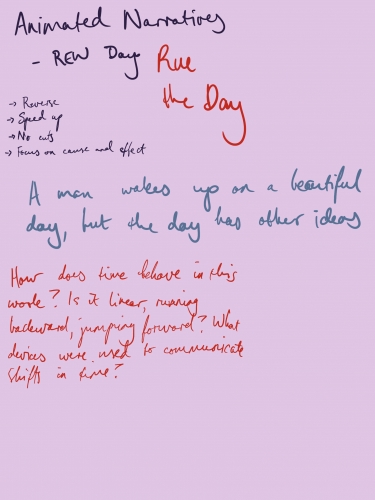 Animated Narratives
- REW Day
Rue
the Day
→ Reverse
→ Speed up
→ No cuts
→ Focus on cause and effect
A man wakes up on a beautiful
day, but the day has other ideas
How does time behave in this
work? Is it linear, running
backward, jumping forward? What
devices were used to communicate
shifts in time?